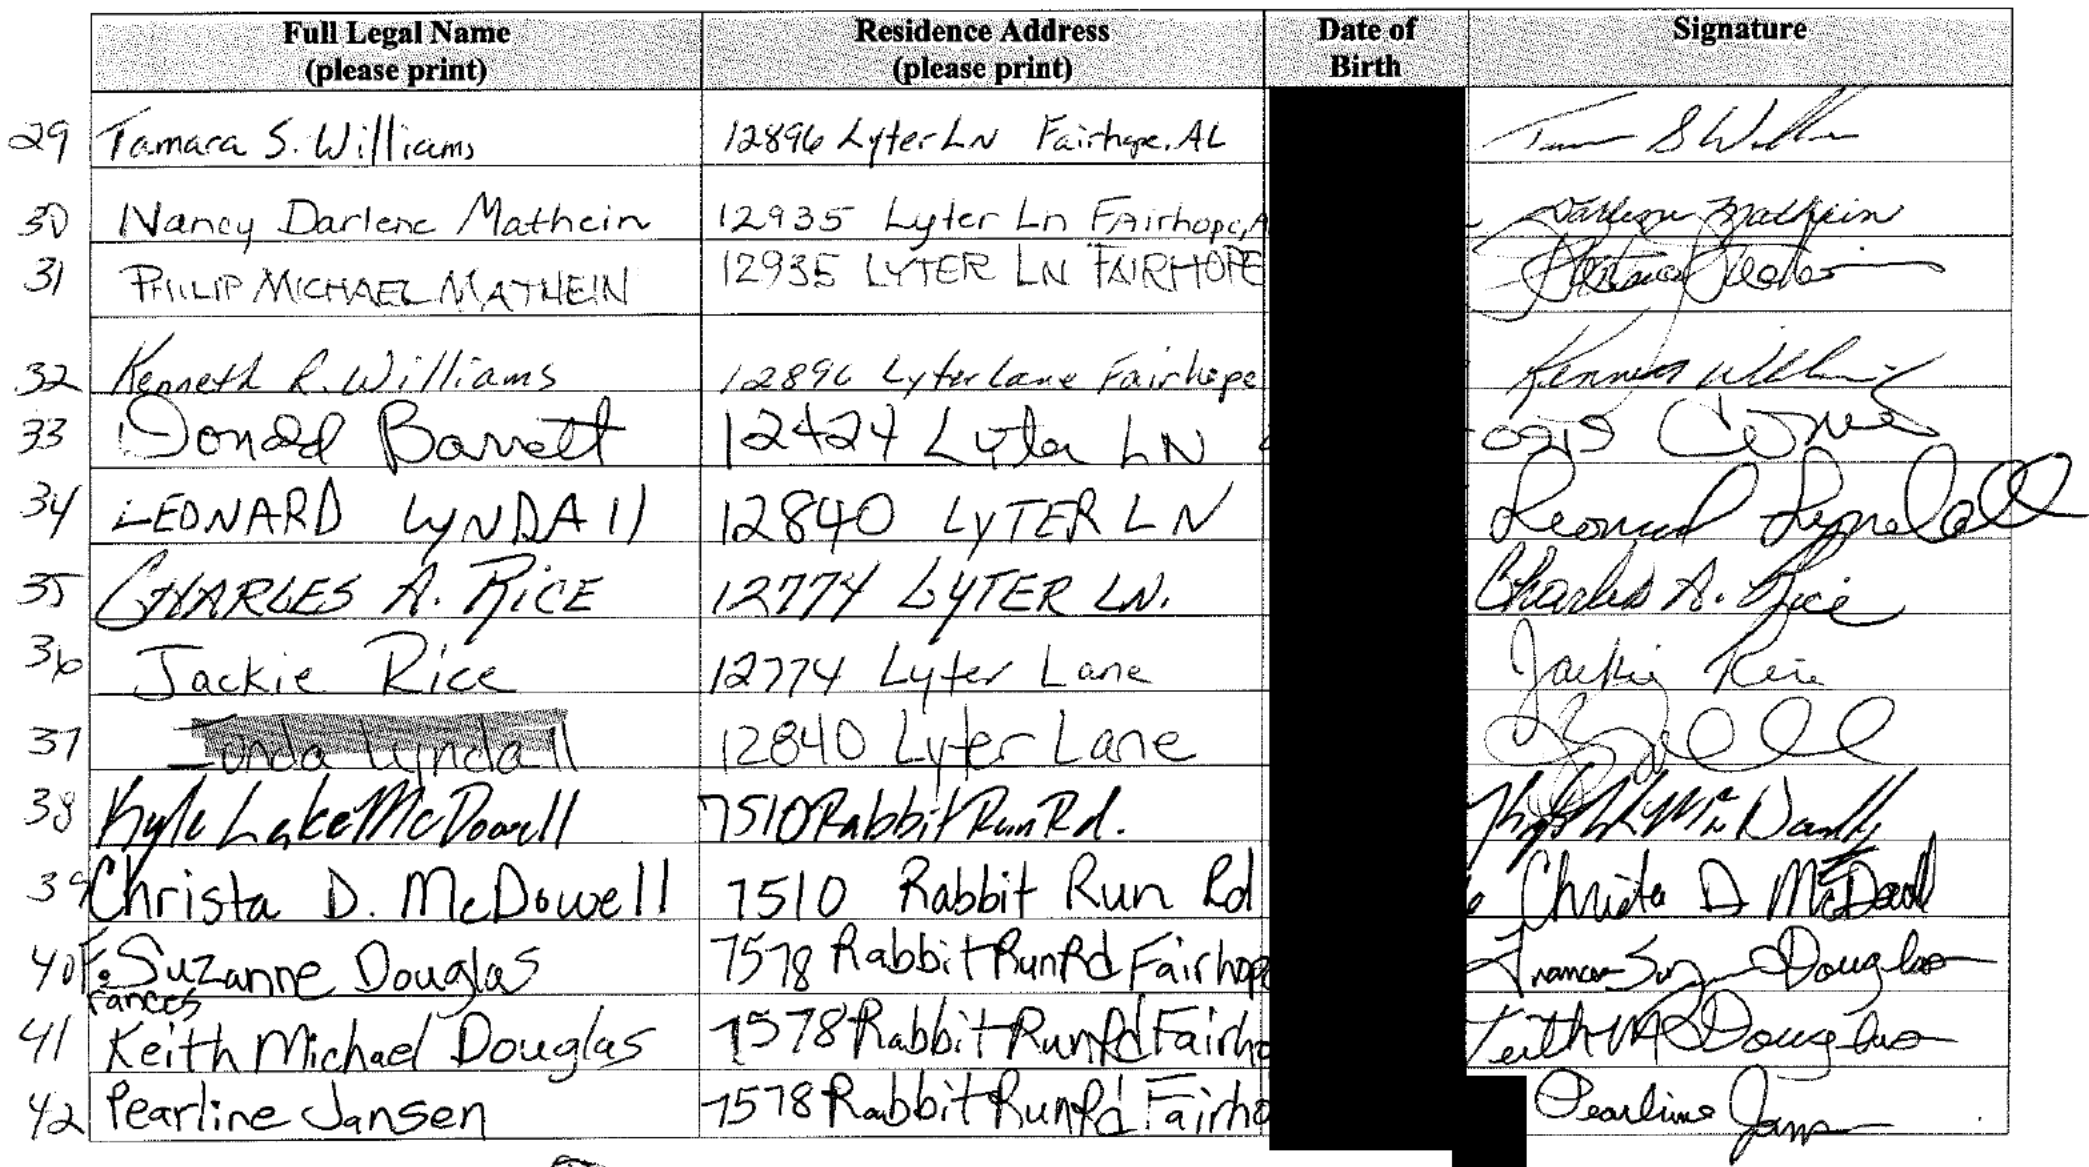 Full Legal Name Residence Address Date of Signature
(please print) (please print) Birth
29 Tamara S. Williams 12896 Lyter LN Fairhope, AL
30 Nancy Darlene Mathein 12935 Lyter Ln FAirhope, A Darlene Mathein
31 PHILIP MICHAEL MATHEIN 12935 LYTER LN FAIRHOPE
32 Kenneth R. Williams 12896 Lyter Lane Fairhope Kenneth
33 Donald Barrett 12424 Lyter LN
34 LEONARD LyNDAll 12840 LyTER LN Leonard Lyndall
35 CHARLES A. RiCE 12774 LyTER LN. Charles A. Rice
36 Jackie Rice 12774 Lyter Lane Jackie Rice
37 Lyndall 12840 Lyter Lane
38 Kyle Lake McDowell 7510 Rabbit Run Rd.
39 Christa D. McDowell 7510 Rabbit Run Rd Christa D McDowell
40 F. Suzanne Douglas 7578 Rabbit Run Rd Fairhope Frances Douglas
rances
41 Keith Michael Douglas 7578 Rabbit Run Rd Fairho Keith M Douglas
42 Pearline Jansen 7578 Rabbit Run Rd Fairho Pearline Jansen